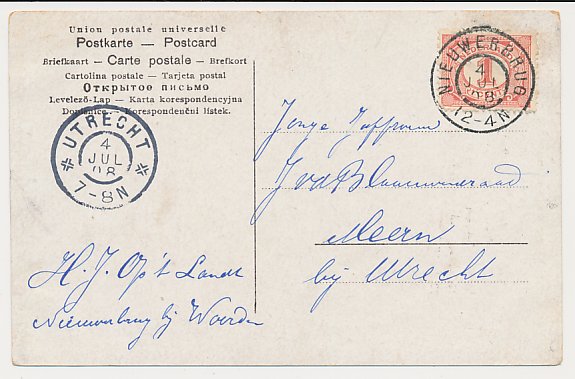 Union postale universelle
Postkarte — Postcard
Briefkaart — Carte postale — Brefkort
Cartolina postale — Tarjeta postal
Открытое письмо
Levelező-Lap — Karta korespondencyjna
Dopisnice — Korespondenční lístek.
UTRECHT
4
JUL
08
7-8N
NIEUWERBRUG
4
JUL
08
12-4N
1
Jonge Juffrouw
J v d Blaauwendraad
Meern
bij Utrecht
H. J. Op't Landt
Nieuwerbrug bij Woerden